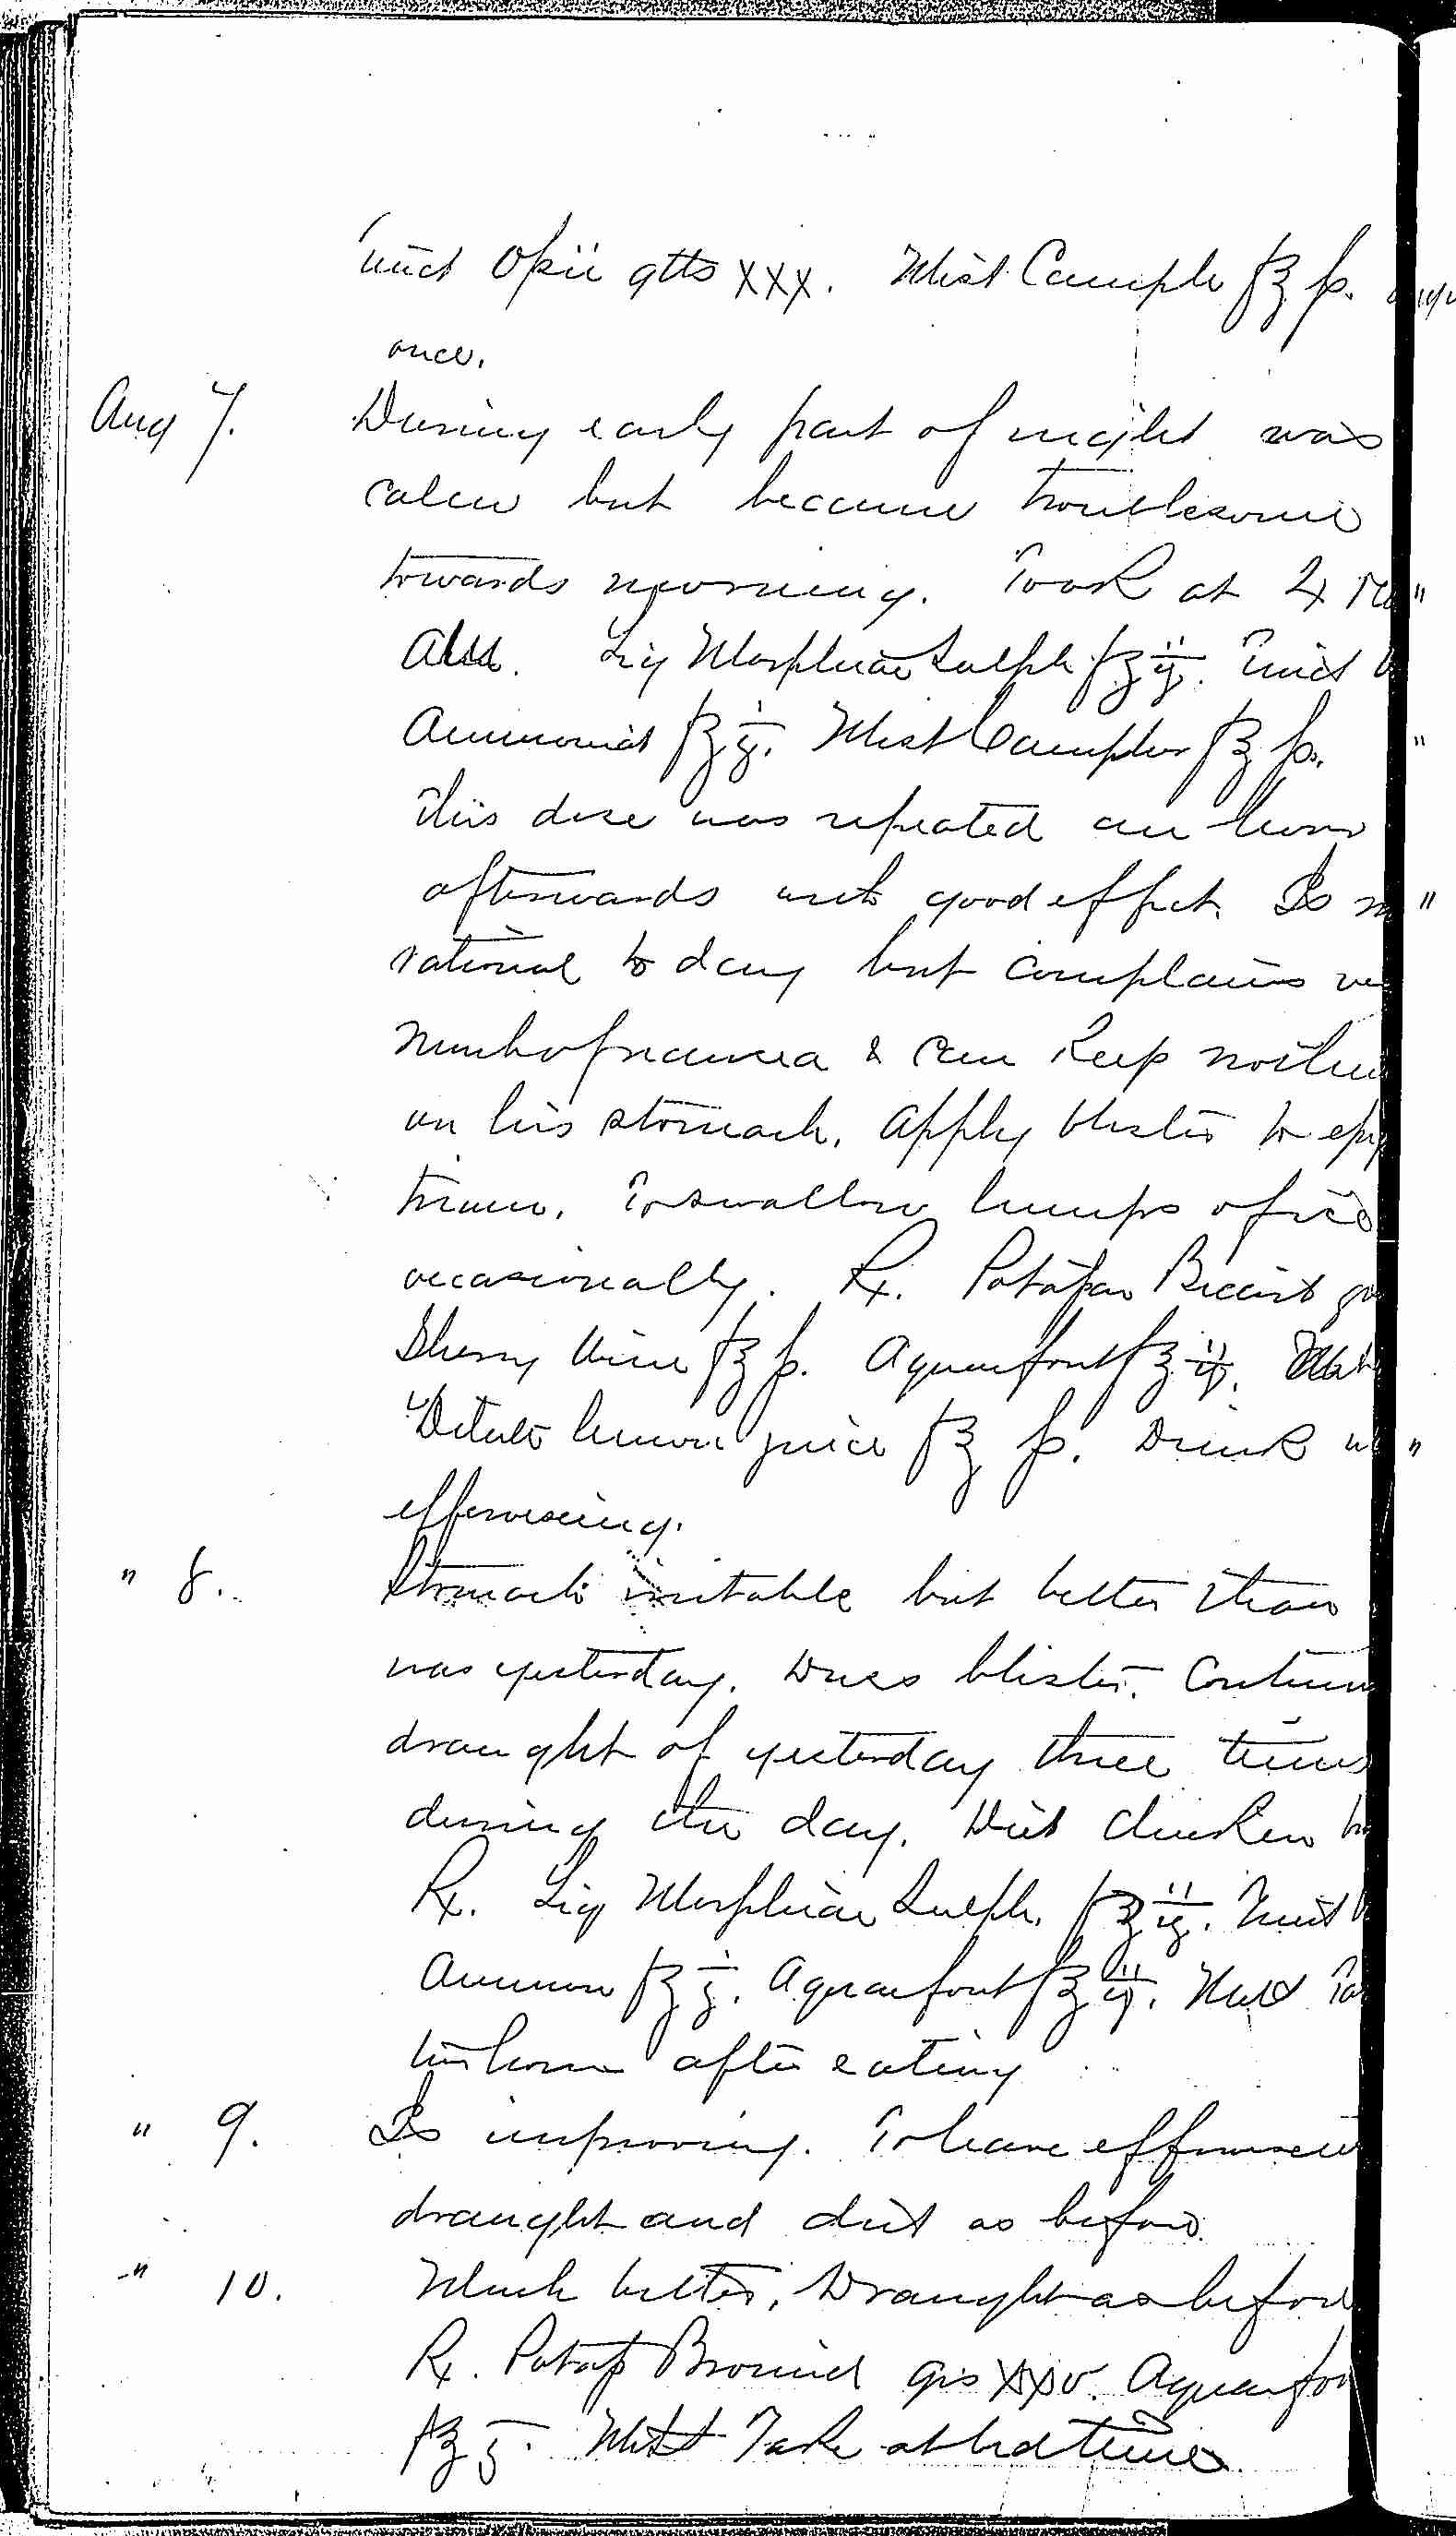 Tinct Opii gtts XXX. Mist Camph f℥ fs.
once.
Aug 7. During early part of night was
calm but became troublesome
towards morning. Took at 4
AM. Liq Morphiae Sulph fʒ ij. Tinct
Ammoniat fʒ j. Mist Camphor f℥ fs.
This dose was repeated an hour
afterwards with good effect. Is
rational to day but complains
much of nausea & can keep nothin
on his stomach. Apply blister to epig
trium. To swallow lumps of ice
occasionally. Rx. Potassae Bicarb
Sherry Wine f℥ fs. Aquae font f℥ ij.
Dilute lemon juice f℥ fs. Drink
effervescing.
" 8. Stomach irritable but better than
was yesterday. Dress blister. Continue
draught of yesterday three times
during the day. Diet chicken
Rx. Liq Morphiae Sulph. fʒ ij. Tinct
Ammon fʒ j. Aquae font f℥ ij. Mist
hour after eating
" 9. Is improving. To have effervesci
draught and diet as before.
" 10. Much better. Draught as before
Rx. Potass Bromid grs XXV. Aquae fon
f℥ j. Mist Take at bedtime.